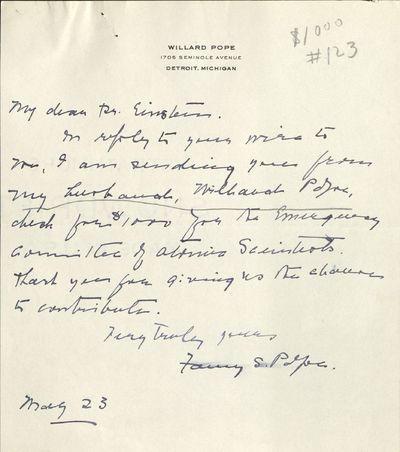 WILLARD POPE
1705 SEMINOLE AVENUE
DETROIT, MICHIGAN
$1000
#123
My dear Dr. Einstein.
In reply to your wire to
me, I am sending you from
my husband, Willard Pope,
check for $1000 for the Emergency
Committee of Atomic Scientists.
Thank you for giving us the chance
to contribute.
Very truly yours
Fanny S. Pope.
May 23